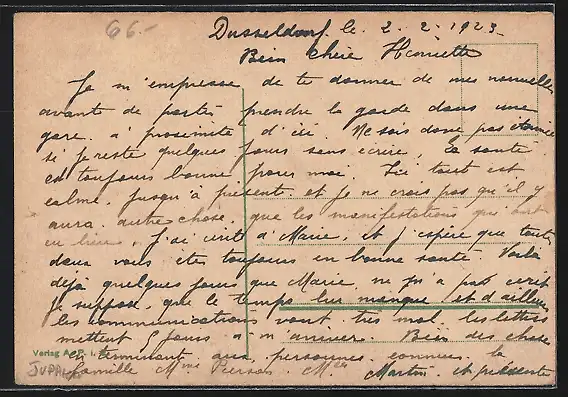 66.-
Dusseldorf. le 2-2-1923-
Bien chère Henriette
Je m'empresse de te donner de mes nouvelles
avant de partir prendre la garde dans une
gare, à proximité d'ici. Ne sois donc pas étonnée
si je reste quelques jours sans écrire, la santé
est toujours bonne pour moi. Ici tout est
calme, jusqu'à présent et je ne crois pas qu'il y
aura autre chose, que les manifestations qui ont
eu lieu. J'ai écrit à Marie, et j'espère que toutes
deux vous êtes toujours en bonne santé. Voilà
déjà quelques jours que Marie, ne m'a pas écrit
je suppose, que le temps lui manque et d'ailleurs
les communications vont très mal les lettres
mettent 5 jours à m'arriver. Bien des choses
en terminant aux personnes connues la
famille Mme Pierson. Martin. et présente
Verlag A. P. i.
JUPAL